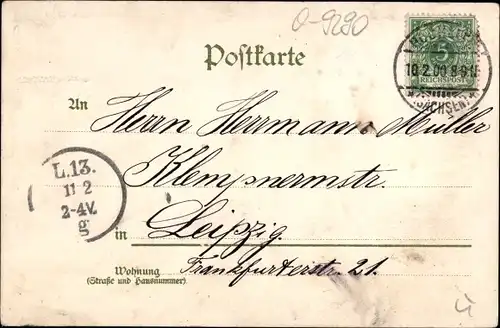 Q-9290
Postkarte
5
REICHSPOST
10.2.00 8-9N
(SACHSEN)
An
Herrn Herrmann Müller
Klempnermstr.
L.13.
11 2
2-4V.
g
in Leipzig.
Wohnung
(Straße und Hausnummer)
Frankfurterstr. 21.